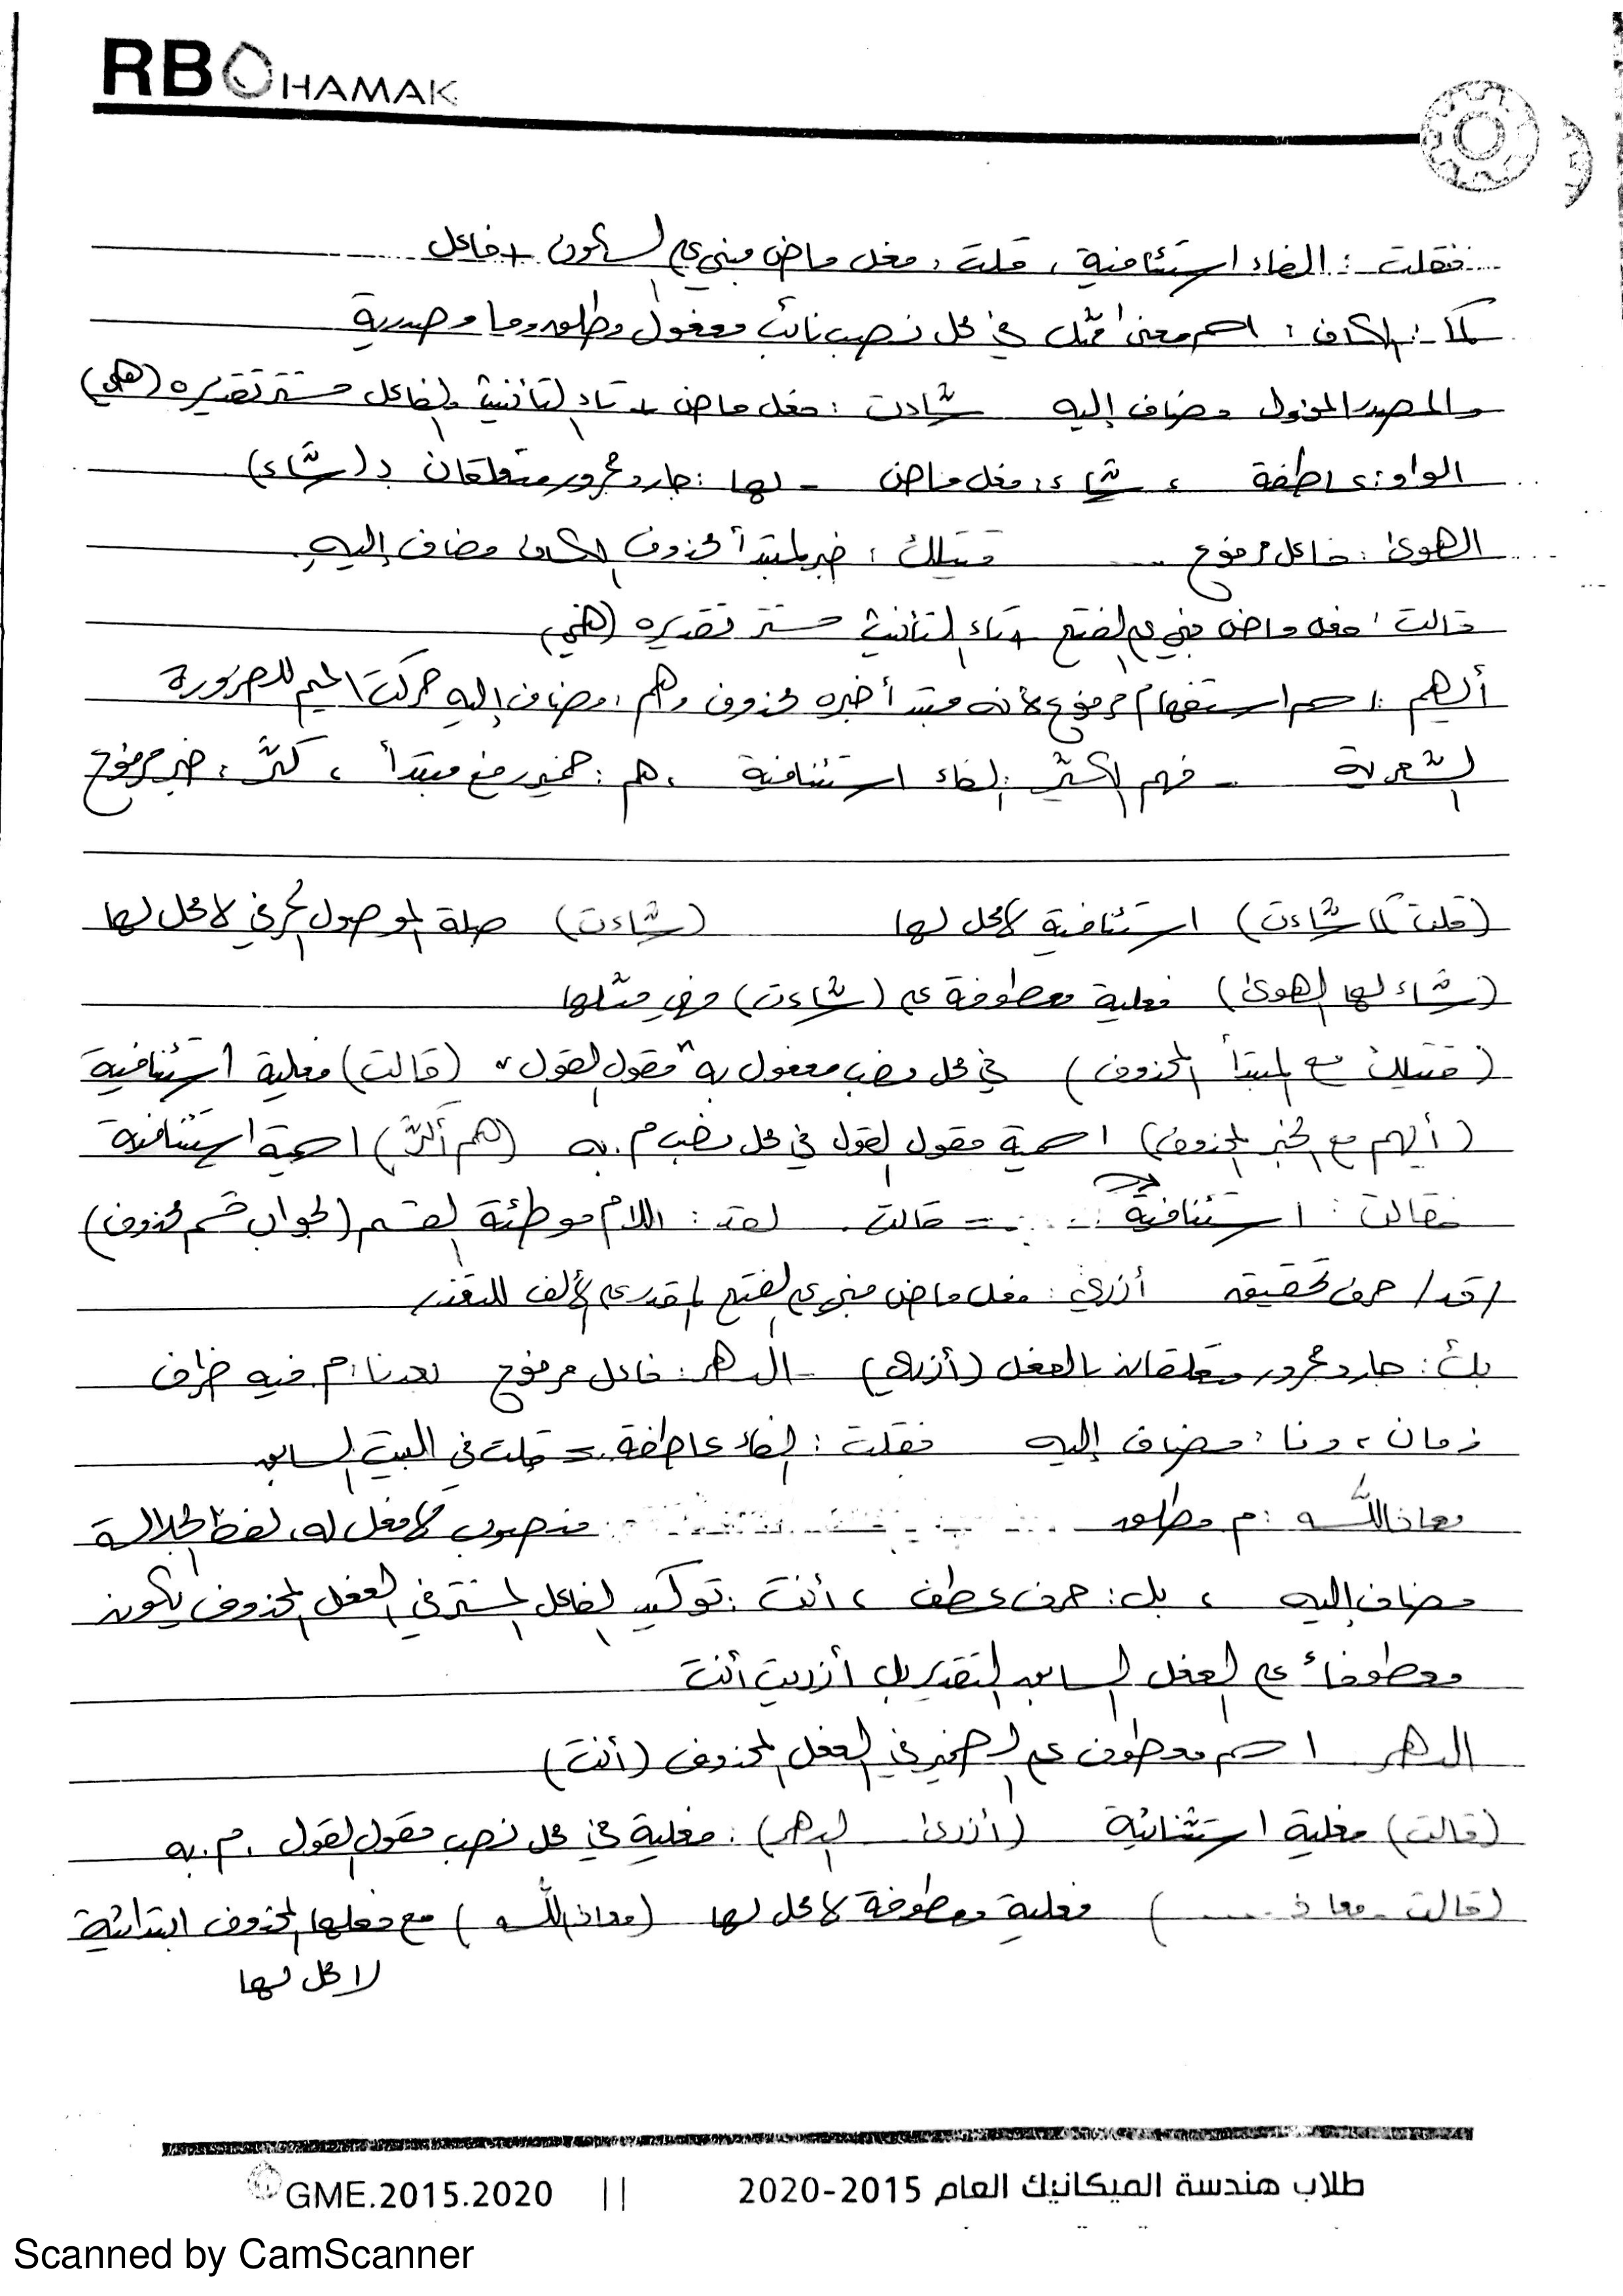 RB HAMAK
فقلت : الفاء استئنافية ، قلت : فعل ماض مبني على السكون + فاعل
كما : الكاف : اسم بمعنى مثل في محل نصب نائب مفعول مطلق وما مصدرية
والمصدر المؤول مضاف إليه شاءت : فعل ماض + تاء التأنيث والفاعل مستتر تقديره (هي)
الواو : عاطفة ، شاء : فعل ماض - لها : جار ومجرور متعلقان بـ (شاء)
الهوى : فاعل مرفوع قتيلك : خبر لمبتدأ محذوف الكاف مضاف إليه .
قالت : فعل ماض مبني على الفتح + تاء التأنيث مستتر تقديره (هي)
أيهم : اسم استفهام مرفوع لأنه مبتدأ خبره محذوف وهم : مضاف إليه حركت الميم للضرورة
الشعرية - فهم أكثر : الفاء استئنافية ، هم : ضمير رفع مبتدأ ، كثر : خبر مرفوع
(قلت كما شاءت) استئنافية لا محل لها (شاءت) صلة الموصول الحرفي لا محل لها
(شاء لها الهوى) فعلية معطوفة على (شاءت) فهي مثلها
(قتيلك مع المبتدأ المحذوف) في محل نصب مفعول به " مقول القول " (قالت) فعلية استئنافية
(أيهم مع الخبر المحذوف) اسمية مقول القول في محل نصب م . به (هم أكثر) اسمية استئنافية
فقالت : استئنافية قالت . لقد : اللام موطئة لقسم (لجواب قسم محذوف)
/ قد / حرف تحقيق أزرى : فعل ماض مبني على الفتح المقدر على الألف للتعذر
بك : جار ومجرور متعلقان بالفعل (أزرى) - الدهر : فاعل مرفوع بعدنا : م . فيه ظرف
زمان ، ونا : مضاف إليه فقلت : الفاء عاطفة = قلت في البيت السابق
معاذ الله : م مطلق منصوب لا فعل له ، لفظ الجلالة
مضاف إليه ، بل : حرف عطف ، أنت : توكيد لفاعل المستتر في الفعل المحذوف يكون
معطوفاً على الفعل السابق التقدير بل أزريت أنت
الدهر اسم معطوف على الضمير في الفعل المحذوف (أنت)
(قالت) فعلية استئنائية (أزرى الدهر) : فعلية في محل نصب مقول القول . م . به
(قالت - معاذ ....) فعلية معطوفة لا محل لها (معاذ الله) مع فعلها المحذوف ابتدائية
لا محل لها
طلاب هندسة الميكانيك العام 2015-2020 || GME.2015.2020
Scanned by CamScanner